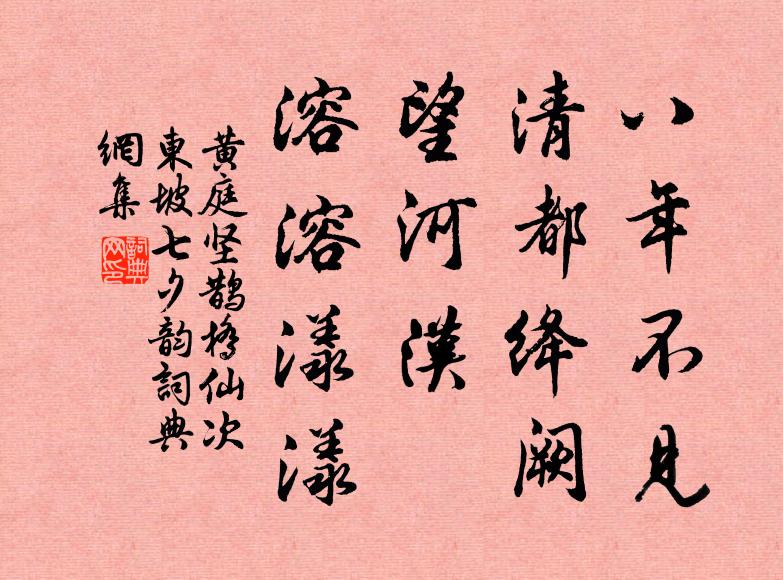 八年不見
清都絳阙
望河漢
溶溶漾漾
黃庭坚鵲橋仙次
東坡七夕韵詞典
網集
詞典網印